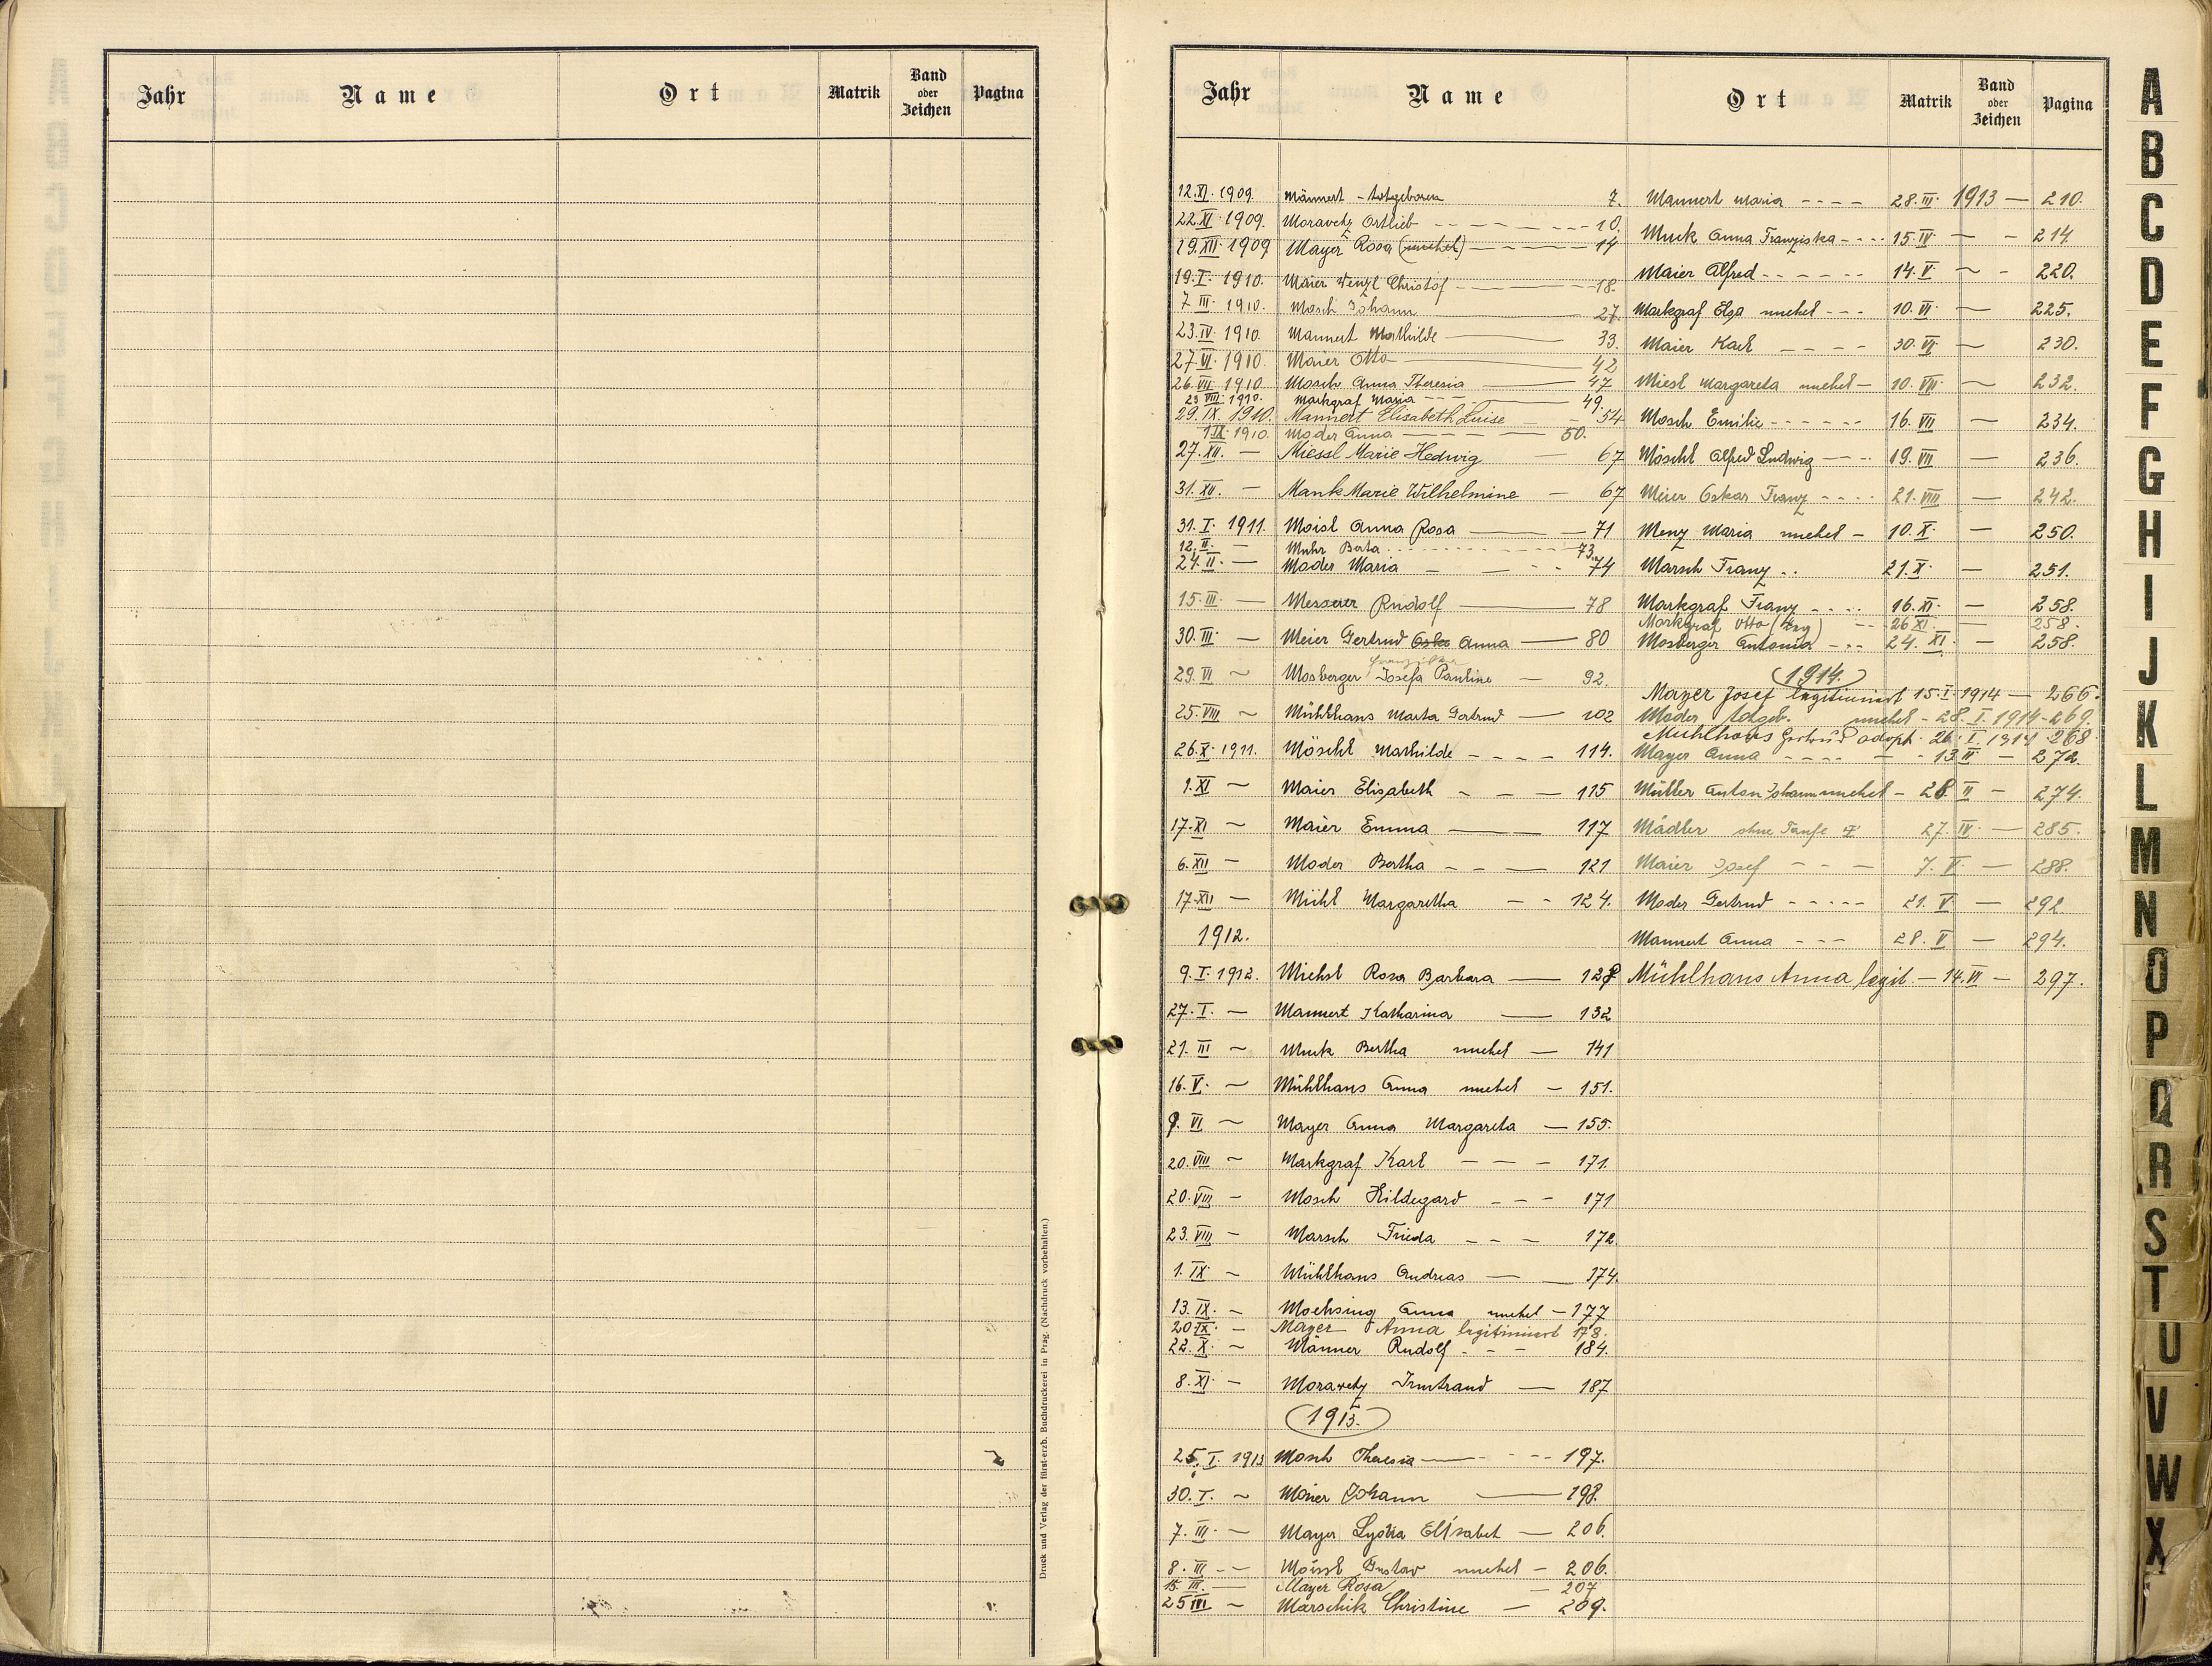 Jahr Name Ort Matrik Band oder Zeichen Pagina
Druck und Verlag der fürst-erzb. Buchdruckerei in Prag. (Nachdruck vorbehalten.)
Jahr Name Ort Matrik Band oder Zeichen Pagina
12.XI. 1909. Männert - totgeboren 7.
22.XI. 1909. Moravetz Ortlieb 10.
19.XII. 1909 Mayer Rosa (unehel) 14
19.I. 1910. Maier Wenzl Christof 18.
7 III. 1910. Mosch Johann 27.
23.IV. 1910. Mannert Mathilde 33.
27.VI. 1910. Maier Otto 42
26.VII. 1910 Mosch Anna Theresia 47
23 VIII. 1910. Markgraf Maria 49
29.IX. 1910. Mannert Elisabeth Luise 54
1 IX. 1910. Moder Anna 50.
27.XII. — Miessl Marie Hedwig 67
31.XII. — Mank Marie Wilhelmine — 67
31.I. 1911. Moisl Anna Rosa 71
12.II. — Muhr Berta 73.
24.II. — Moder Maria 74
15.III. — Messner Rudolf 78
30.III. — Meier Gertrud Anna 80
Franziska
29.VI ~ Mosberger Josefa Pauline — 92.
25.VIII ~ Mühlhans Marta Gertrud — 102
26.X. 1911. Möschl Mathilde 114.
1.XI ~ Maier Elisabeth 115
17.XI ~ Maier Emma 117
6.XII — Moder Bertha 121
17.XII — Mühl Margaretha 124.
1912.
9.I. 1912. Miehsl Rosa Barbara — 128
27.I. — Mannert Katharina 132
21.III ~ Muck Bertha unehel — 141
16.V. ~ Mühlhans Anna unehel — 151.
9.VI ~ Mayer Anna Margareta — 155.
20.VIII ~ Markgraf Karl 171.
20.VIII — Mosch Hildegard 171
23.VIII — Marsch Frieda 172.
1.IX. ~ Mühlhans Andreas 174.
13.IX. — Moehsing Anna unehel — 177
20.IX. — Mayer Anna legitimiert 178.
22.X. ~ Männer Rudolf 184.
8.XI. — Morawetz Irmtraud — 187
1913.
25.I. 1913 Mosch Theresia 197.
30.I. ~ Maier Johann 198.
7.III. — Mayer Lydia Elisabet — 206.
8.III — Moissl Gustav unehel — 206.
15.III. — Mayer Rosa — 207
25 III ~ Marschik Christine — 209.
Mannert Maria 28.III. 1913 — 210.
Muck Anna Franziska 15.IV — 214.
Maier Alfred 14.V ~ 220.
Markgraf Elsa unehel 10.VI. — 225.
Maier Karl 30.VI ~ 230.
Miesl Margareta unehel — 10.VII. ~ 232.
Mosch Emilie 16.VII — 234.
Möschl Alfred Ludwig 19.VII — 236.
Meier Oskar Franz 21.VIII — 242.
Menz Maria unehel — 10.X. — 250.
Marsch Franz 21.X. — 251.
Markgraf Franz 16.XI. — 258.
Markgraf Otto 26 XI — 258.
Mosberger Antonia 24.XI. — 258.
1914.
Mayer Josef legitimiert 15.I. 1914 — 266.
Moder totgeb. unehel — 28.I. 1914 - 269.
Mühlhans Gertrud adopt. 26.I. 1914 268
Mayer Anna 13.II — 272.
Müller Anton Johann unehel — 28.II — 274.
Mädler ohne Taufe 27.IV. — 285.
Maier Josef 7.V. — 288.
Moder Gertrud 21.V — 292.
Mannert Anna 28.V — 294.
Mühlhans Anna legit. — 14.VI — 297.
A
B
C
D
E
F
G
H
I
J
K
L
M
N
O
P
Q
R
S
T
U
V
W
X